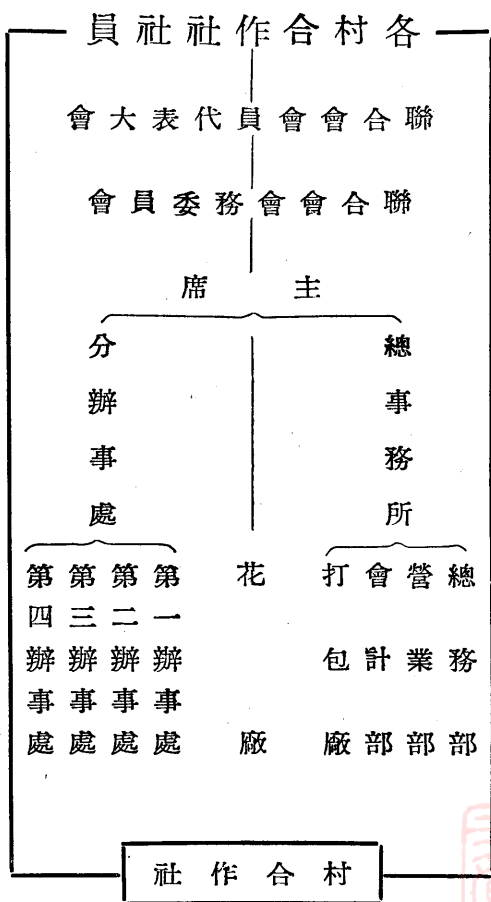 各村合作社社員
聯合會會員代表大會
聯合會會務委員會
主席
總事務所
分辦事處
總務部
營業部
會計部
打包廠
花廠
第一辦事處
第二辦事處
第三辦事處
第四辦事處
村合作社